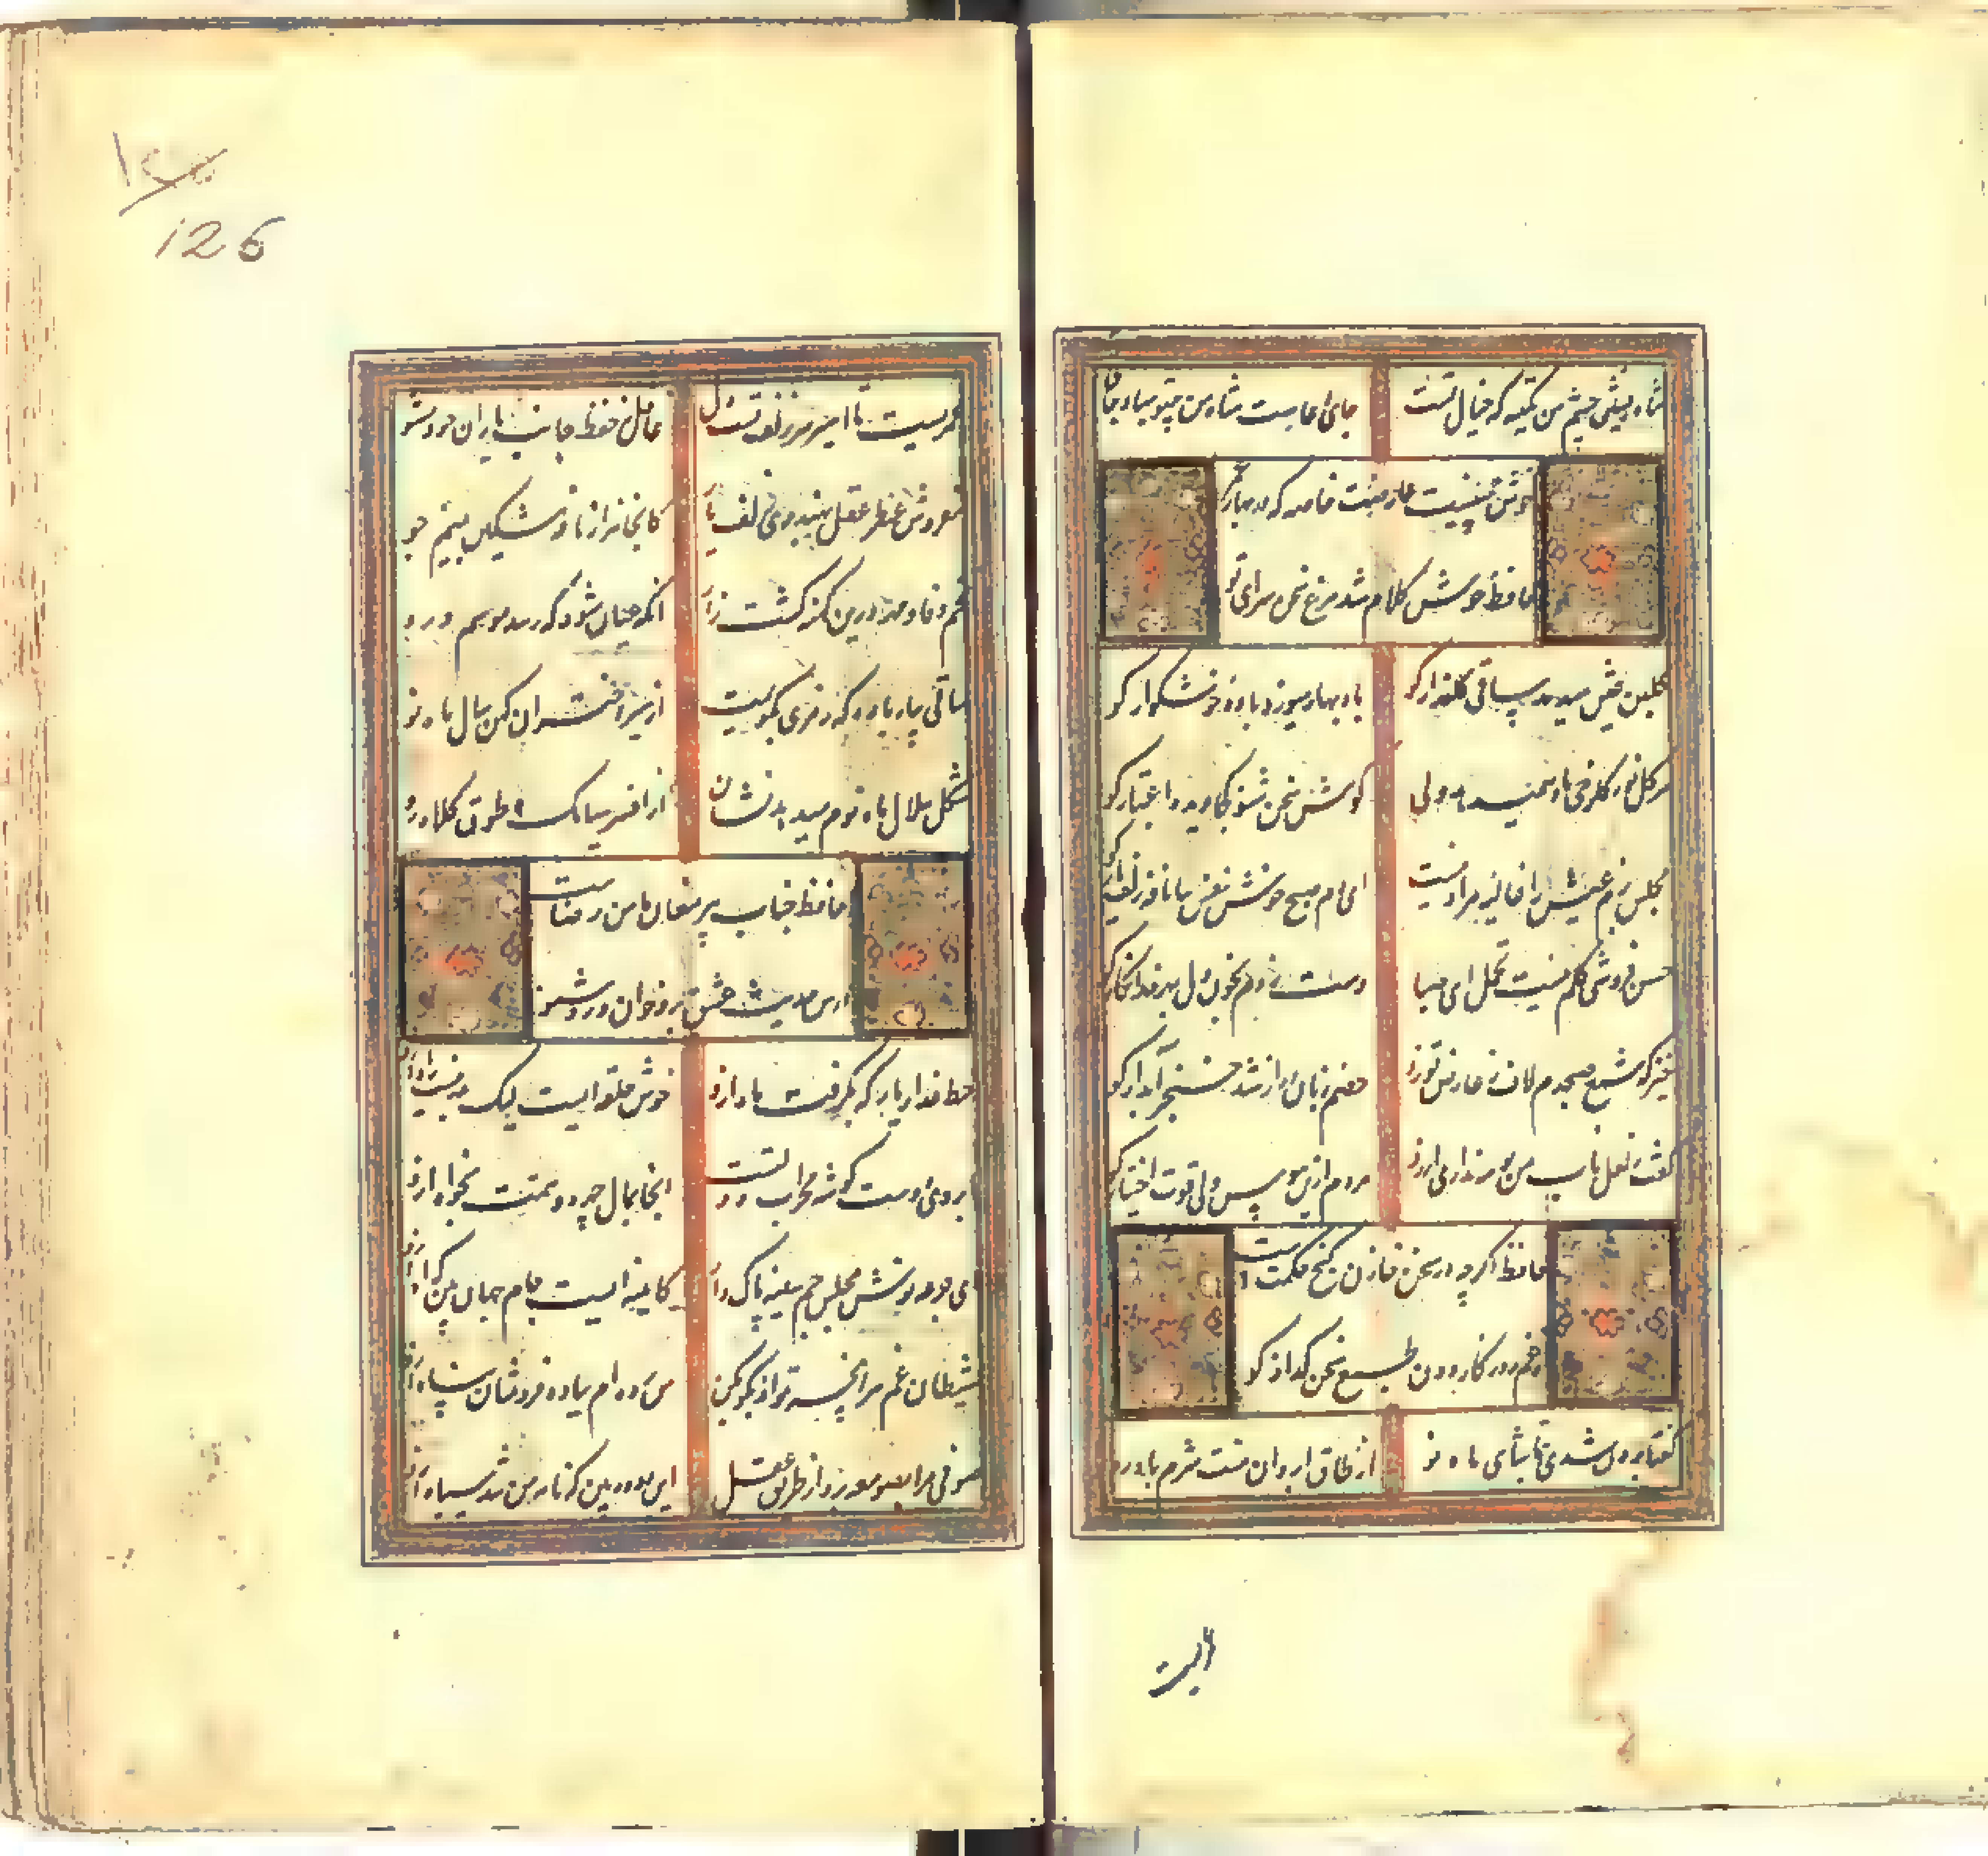 شاه نشین چشم من تکیه که خیال تست
جای دعاست شاه من بیتو مباد جای تو
خوش چمنیست عارضت خاصه که در بهار
حافظ خوش کلام شد مرغ سخن سرای تو
گلبن عیش میدمد ساقی گلعذار کو
باد بهار میوزد باده خوشگوار کو
هر گل نو ز گلرخی یاد همیدهد ولی
گوش سخن شنو کجا دیده اعتبار کو
مجلس بزم عیش را غالیه مراد نیست
ای دم صبح خوش نفس نافه زلف یار کو
حسن فروشی گلم نیست تحمل ای صبا
دست زدم بخون دل بهر خدا نگار کو
شمع صبحدم لاف ز عارض تو زد
خصم زبان دراز شد خنجر آبدار کو
گفت ز لعل ناب من بوسه نداری آرزو
مردم ازین هوس ولی قوت اختیار کو
حافظ اگرچه در سخن خازن گنج حکمت است
از غم روزگار دون طبع سخن گذار کو
گفتا برون شدی تماشای ماه نو
از طاق ابروان منت شرم باد رو
عمریست تا اسیر زلف تست دل
غافل ز حفظ جانب یاران خود مشو
مفروش عطر عقل بهندوی زلف یار
کانجا هزار نافه مشکین به نیم جو
تخم وفا و مهر درین کهنه کشت زار
آنگه عیان شود که رسد موسم درو
ساقی بیار باده که رمزی بگویمت
از سیر اختران کهن سال ماه نو
شکل هلال ماه نوم میدهد نشان
از افسر سیامک و طرف کلاه زو
حافظ جناب پیر مغان مامن وفاست
درس حدیث عشق برو خوان و زو شنو
خط عذار یار که بگرفت ماه ازو
خوش حلقه ایست لیک بدر نیست راه ازو
ابروی دوست گوشه محراب دولتست
آنجا بمال چهره و همت بخواه ازو
ای جرعه نوش مجلس جم سینه پاک دار
کایینه ایست جام جهان بین که آه ازو
شیطان غم هر آنچه تواند بگو بکن
من برده ام بباده فروشان پناه ازو
صوفی مرا بمیکده برد از طریق عقل
این دود بین که نامه من شد سیاه ازو
126